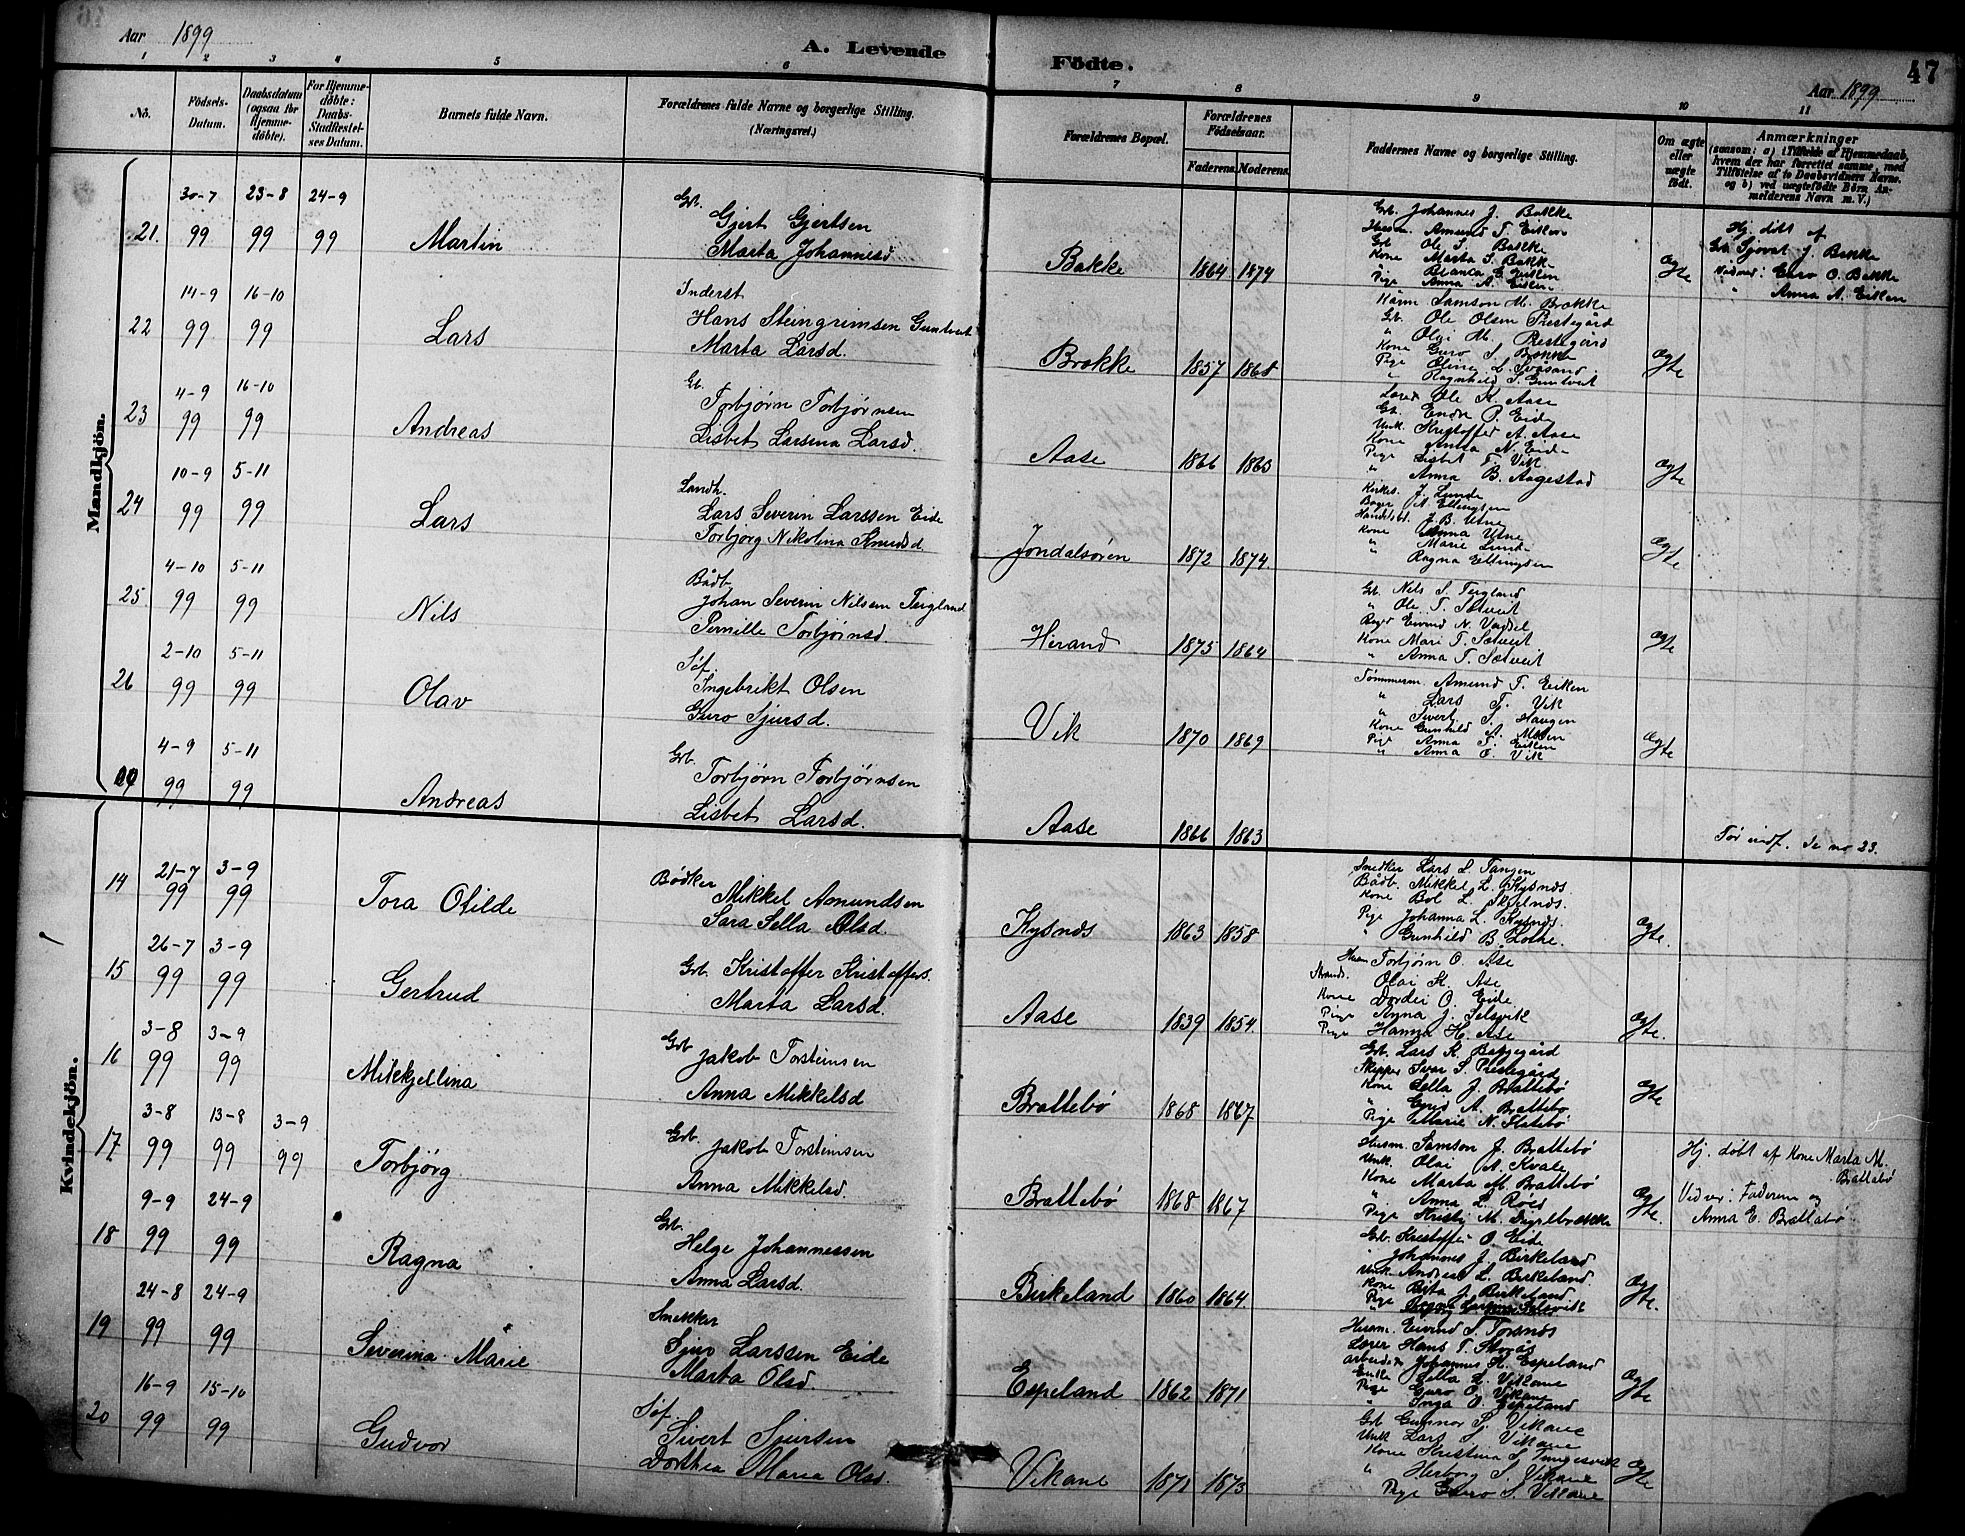 Aar 1899
A. Levende Födte.
47
Aar 1899
1 2 3 4 5 6 7 8 9 10 11
No.
Födsels-Datum.
Daabsdatum (ogsaa for Hjemme-döbte).
For Hjemme-döbte: Daabs-Stadfæstel-ses Datum.
Barnets fulde Navn.
Forældrenes fulde Navne og borgerlige Stilling. (Næringsvei.)
Forældrenes Bopæl.
Forældrenes Födselsaar.
Faderens. Moderens.
Faddernes Navne og borgerlige Stilling.
Om ægte eller uægte födt.
Anmærkninger
(saasom: a) i Tilfælde af Hjemmedaab, hvem der har forrettet samme, med Tilföielse af to Daabsvidners Navne, og b) ved uægtefödte Börn An-melderens Navn m. V.)
Mandkjön.
21. 30-7 99 23-8 99 24-9 99 Martin
Grb. Gjert Gjertsen
Marta Johannesd
Bakke 1864 1874
Grb. Johannes J. Bakke
Husm. Amund T. Eiken
Grb Ole S. Bakke
Kone Marta S. Bakke
Pige Anna A. Eiken
Ægte
Hj. döbt af
Grb. Sjovat J. Bakke
Vidner: Guro O. Bakke
" Anna A. Eiken
22 14-9 99 16-10 99 Lars
Inderst
Hans Steingrimsen Guntveit
Marta Larsd.
Brakke 1857 1868
Samson M. Brakke
Grb. Ole Olsen Prestegård
" Olai M. Prestegård
Kone Guro S. Brakke
Pige Oline L. Svåsand
" Ragnhild S. Guntveit
Ægte
23 4-9 99 16-10 99 Andreas
Gb. Torbjørn Torbjørnsen
Lisbet Larsina Larsd.
Aase 1866 1863
Lærer Ole K. Aase
Gb. Endre P. Eide
Unk. Kristoffer A. Aase
Kone Anna N. Eide
Pige Lisbet T. Vik
" Anna B. Aagestad
Ægte
24 10-9 99 5-11 99 Lars
Landh.
Lars Severin Larssen Eide
Torbjørg Nikolina Knudsd
Jondalsören 1872 1874
Kirkes. J. Lunde
Bager A. Ellingsen
Handelsbt. J. B. Utne
Kone Anna Utne
" Marie Lunde
" Ragna Ellingsen
Ægte
25. 4-10 99 5-11 99 Nils
Bådb.
Johan Severin Nilsen Teigland
Pernille Torbjørnsd.
Herand 1875 1864
Grb. Nils S. Teigland
" Ole T. Sætveit
Eivind N.
Kone Mari T. Sætveit
" Anna T. Sætveit
Ægte
26 2-10 99 5-11 99 Olav
Søf.
Ingebrikt Olsen
Guro Sjursd.
Vik 1870 1869
Tømmerm. Amund T. Eiken
" Lars T. Vik
" Sivert S. Haugen
Kone Gunhild A.
Pige Anna T. Eiken
" Anna O. Vik
Ægte
4-9 99 5-11 99 Andreas
Grb. Torbjørn Torbjørnsen
Lisbet Larsd.
Aase 1866 1863
Før indf. Se no 23.
Kvindekjön.
14 21-7 99 3-9 99 Tora Otilde
Bødker Mikkel Amundsen
Sara Sella Olsd.
Kysnæs 1863 1858
Snedker Lars L. Tangen
Bådb. Mikkel L. Kysnæs.
Kone Bol L. Skjelnæs.
Pige Johanna L. Kysnæs
" Gunhild B. Lothe.
Ægte.
15 26-7 99 3-9 99 Gertrud
Grb. Kristoffer Kristoffers.
Marta Larsd.
Aase 1839 1854
Husm Torbjørn O. Ase
Strands. Olai K. Ase
Kone Dordei O. Eide
Pige Anna J. Selsvik
Pige Hanna H. Ase
Ægte.
16 3-8 99 3-9 99 Mikkjellina
Grb Jakob Torsteinsen
Anna Mikkelsd
Brattebö 1868 1867
Grb. Lars K. Bakkegård
Skipper Ivar S. Prestegård
Kone Sella J. Brattebö
" Guri A. Brattebö
Pige Marie N. Flatebö
Ægte
17 3-8 99 13-8 99 3-9 99 Torbjörg
Grb. Jakob Torsteinsen
Anna Mikkelsd.
Brattebö 1868 1867
Husm. Samson J. Brattebö
Unk. Olai A. Kvale
Kone Marta M. Brattebö
" Anna L. Røed
Pige Kristi M.
Ægte.
Hj. döbt af Kone Marta M. Brattebö
Vidner: Faderen og
Anna E. Brattebö
18 9-9 99 24-9 99 Ragna
Grb. Helge Johannessen
Anna Larsd.
Birkeland 1860 1864
Grb. Kristoffer O. Eide
" Johannes J. Birkeland
Unk. Andreas L. Birkeland
Kone Brita J. Birkeland
Pige
Ægte.
19 24-8 99 24-9 99 Severina Marie
Snekker
Sjur Larssen Eide
Marta Olsd.
Espeland 1862 1871
Husm. Eivind T. Torsnæs
Lærer Hans T.
Arbeider Johannes H. Espeland
Enke Sella L. Vikane
Pige Guro O. Vikane
" Inga O. Espeland
Ægte
20 16-9 99 15-10 99 Gudvor
Søf. Sivert Sjursen
Dorthea Maria Olsd.
Vikane 1871 1873
Grb Gunnar S. Vikane
Unk Lars S. Vikane
Kone Kristina S.
" Herborg S. Vikane
Pige Guro S. Vikane
Ægte